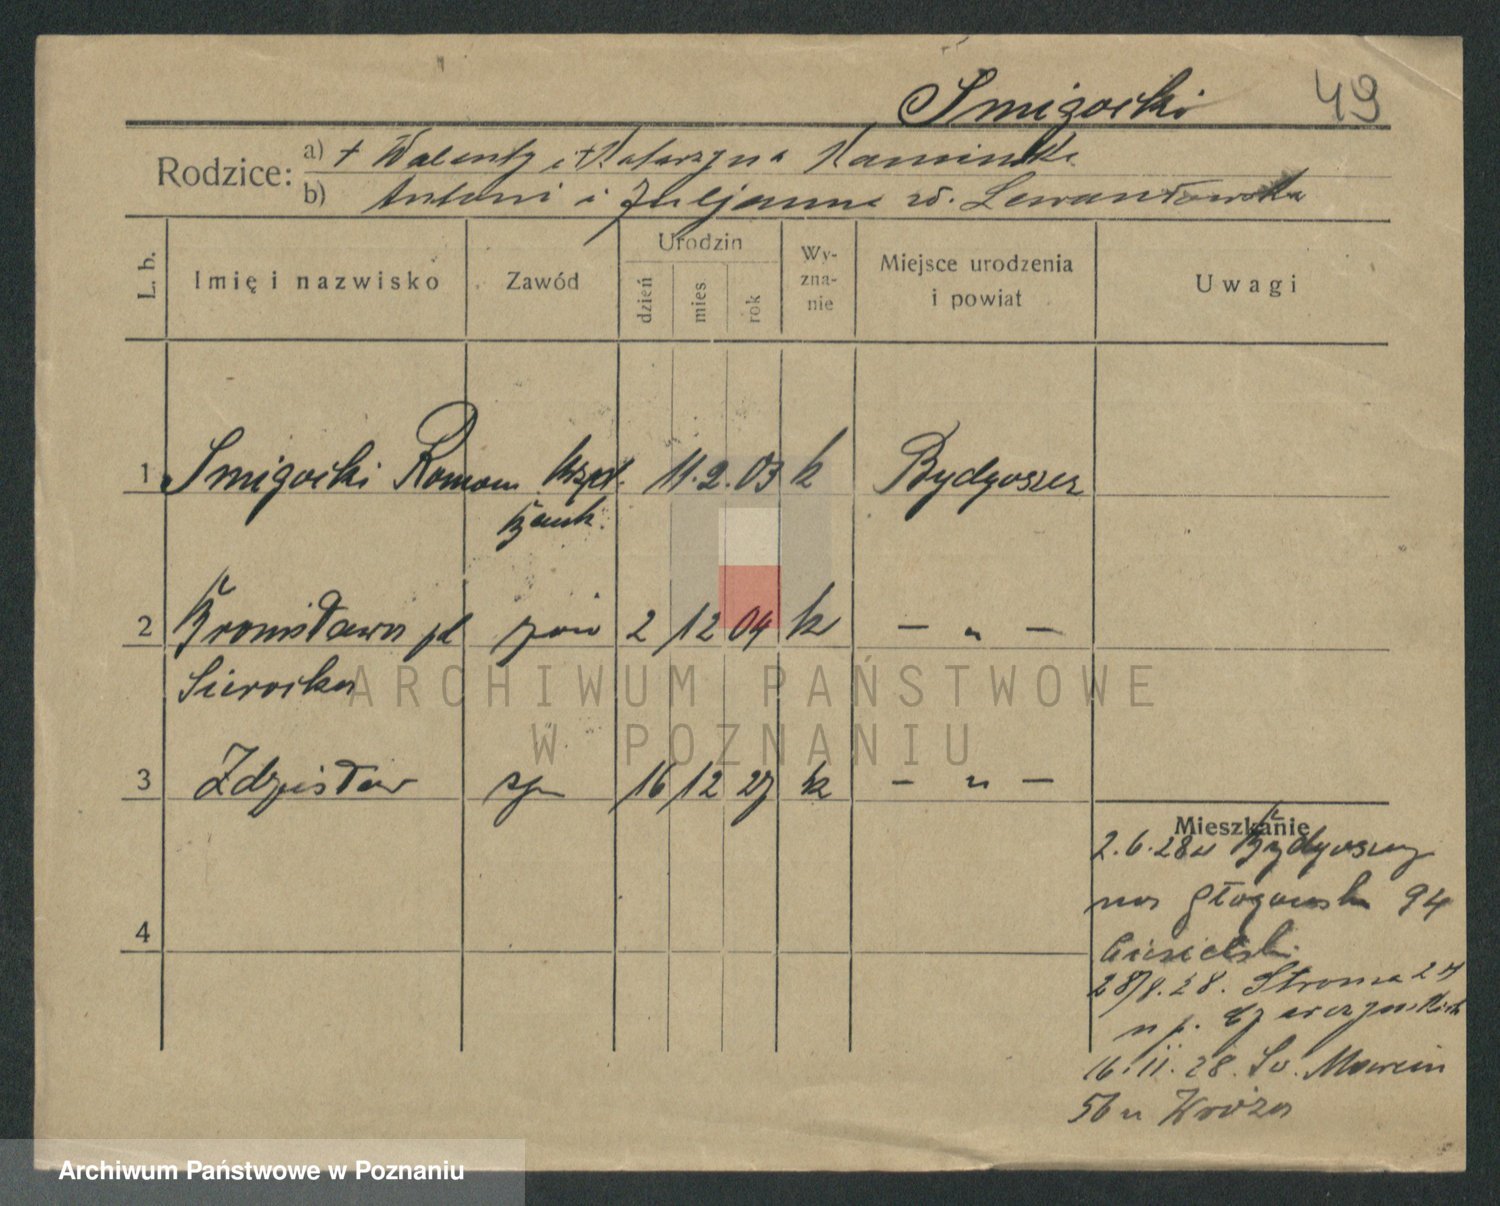 Smigocki 49
Rodzice: a) + Walenty i + Katarzyna Kamińska
b) Antoni i Juljanna zd. Lewandowska
L. b. Imię i nazwisko Zawód Urodzin dzień mies rok Wy-zna-nie Miejsce urodzenia i powiat Uwagi
1 Smigocki Roman urzęd. 11. 2. 03 k Bydgoszcz
bank
2 Bronisława pd 2 12 04 k — „ —
Sierocka
3 Zdzisław syn 16 12 27 k — „ —
Mieszkanie
2. 6. 28 z Bydgoszczy
na Głogowsk 94
Ciesielski
4
28/8. 28. Stroma 24
u p.
16. 11. 28. Św. Marcin
56 u Wróża
ARCHIWUM PAŃSTWOWE
W POZNANIU
Archiwum Państwowe w Poznaniu